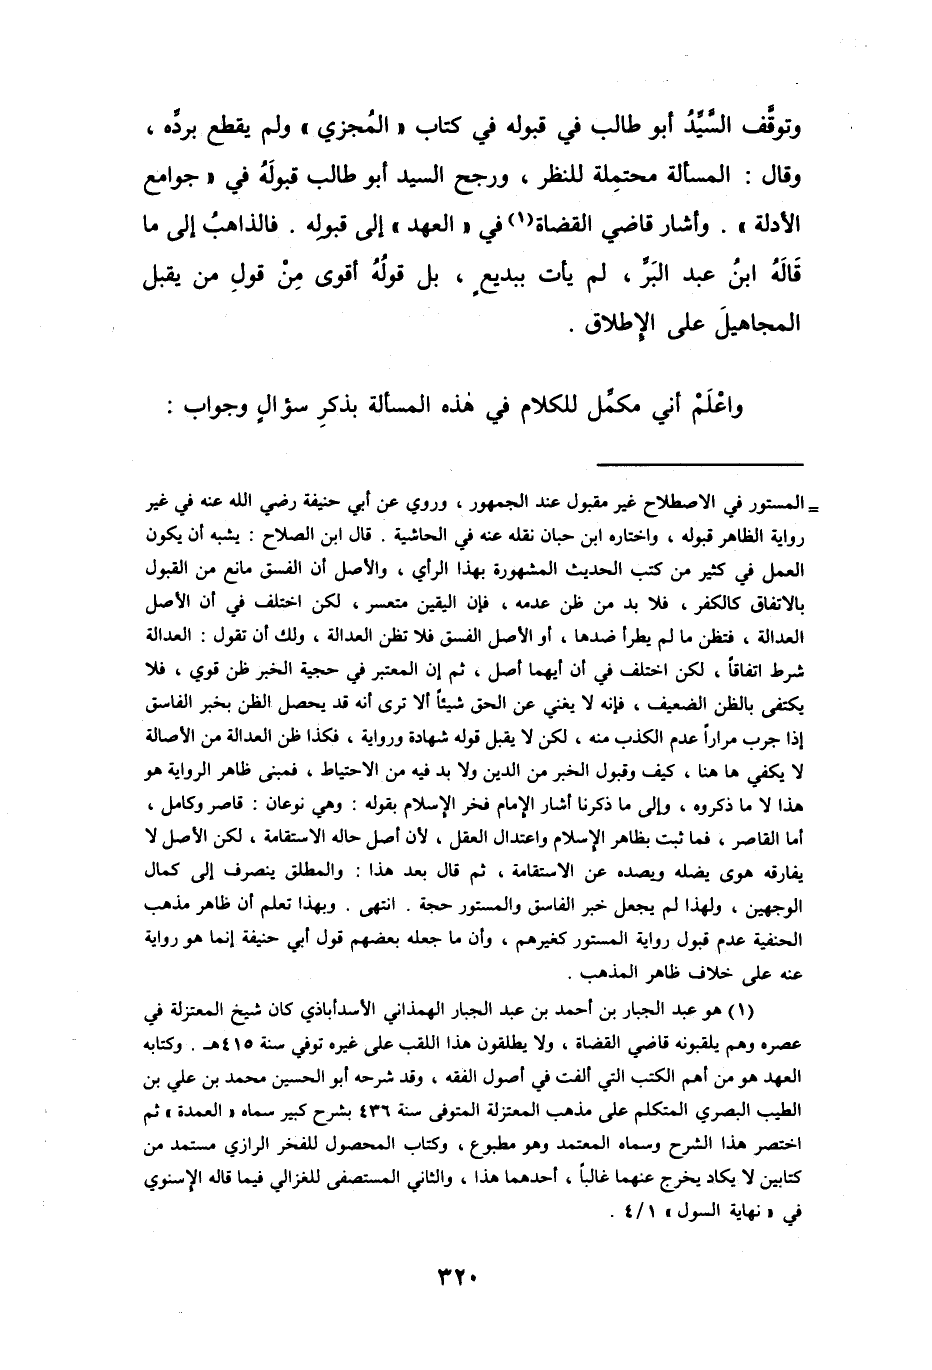 وتوقَّف السَّيِّدُ أبو طالب في قبوله في كتاب « المُجزي » ولم يقطع بردِّه ،
وقال : المسألة محتمِلة للنظر ، ورجح السيد أبو طالب قبولَهُ في « جوامع
الأدلة » . وأشار قاضي القضاة(١) في « العهد » إلى قبولِه . فالذاهبُ إلى ما
قَالَهُ ابنُ عبد البَرِّ ، لم يأت ببديعٍ ، بل قولُهُ أقوى مِنْ قولِ من يقبل
المجاهيلَ على الإِطلاق .
واعْلَمْ أني مكمِّل للكلام في هٰذه المسألة بذكرِ سؤالٍ وجواب :
= المستور في الاصطلاح غير مقبول عند الجمهور ، وروي عن أبي حنيفة رضي الله عنه في غير
رواية الظاهر قبوله ، واختاره ابن حبان نقله عنه في الحاشية . قال ابن الصلاح : يشبه أن يكون
العمل في كثير من كتب الحديث المشهورة بهذا الرأي ، والأصل أن الفسق مانع من القبول
بالاتفاق كالكفر ، فلا بد من ظن عدمه ، فإن اليقين متعسر ، لكن اختلف في أن الأصل
العدالة ، فتظن ما لم يطرأ ضدها ، أو الأصل الفسق فلا تظن العدالة ، ولك أن تقول : العدالة
شرط اتفاقاً ، لكن اختلف في أن أيهما أصل ، ثم إن المعتبر في حجية الخبر ظن قوي ، فلا
يكتفى بالظن الضعيف ، فإنه لا يغني عن الحق شيئاً ألا ترى أنه قد يحصل الظن بخبر الفاسق
إذا جرب مراراً عدم الكذب منه ، لكن لا يقبل قوله شهادة ورواية ، فكذا ظن العدالة من الأصالة
لا يكفي ها هنا ، كيف وقبول الخبر من الدين ولا بد فيه من الاحتياط ، فمبنى ظاهر الرواية هو
هذا لا ما ذكروه ، وإلى ما ذكرنا أشار الإمام فخر الإسلام بقوله : وهي نوعان : قاصر وكامل ،
أما القاصر ، فما ثبت بظاهر الإسلام واعتدال العقل ، لأن أصل حاله الاستقامة ، لكن الأصل لا
يفارقه هوى يضله ويصده عن الاستقامة ، ثم قال بعد هذا : والمطلق ينصرف إلى كمال
الوجهين ، ولهذا لم يجعل خبر الفاسق والمستور حجة . انتهى . وبهذا تعلم أن ظاهر مذهب
الحنفية عدم قبول رواية المستور كغيرهم ، وأن ما جعله بعضهم قول أبي حنيفة إنما هو رواية
عنه على خلاف ظاهر المذهب .
(١) هو عبد الجبار بن أحمد بن عبد الجبار الهمذاني الأسدأباذي كان شيخ المعتزلة في
عصره وهم يلقبونه قاضي القضاة ، ولا يطلقون هذا اللقب على غيره توفي سنة ٤١٥هـ . وكتابه
العهد هو من أهم الكتب التي ألفت في أصول الفقه ، وقد شرحه أبو الحسين محمد بن علي بن
الطيب البصري المتكلم على مذهب المعتزلة المتوفى سنة ٤٣٦ بشرح كبير سماه « العمدة » ثم
اختصر هذا الشرح وسماه المعتمد وهو مطبوع ، وكتاب المحصول للفخر الرازي مستمد من
كتابين لا يكاد يخرج عنهما غالباً ، أحدهما هذا ، والثاني المستصفى للغزالي فيما قاله الإسنوي
في « نهاية السول » ٤/١ .
٣٢٠